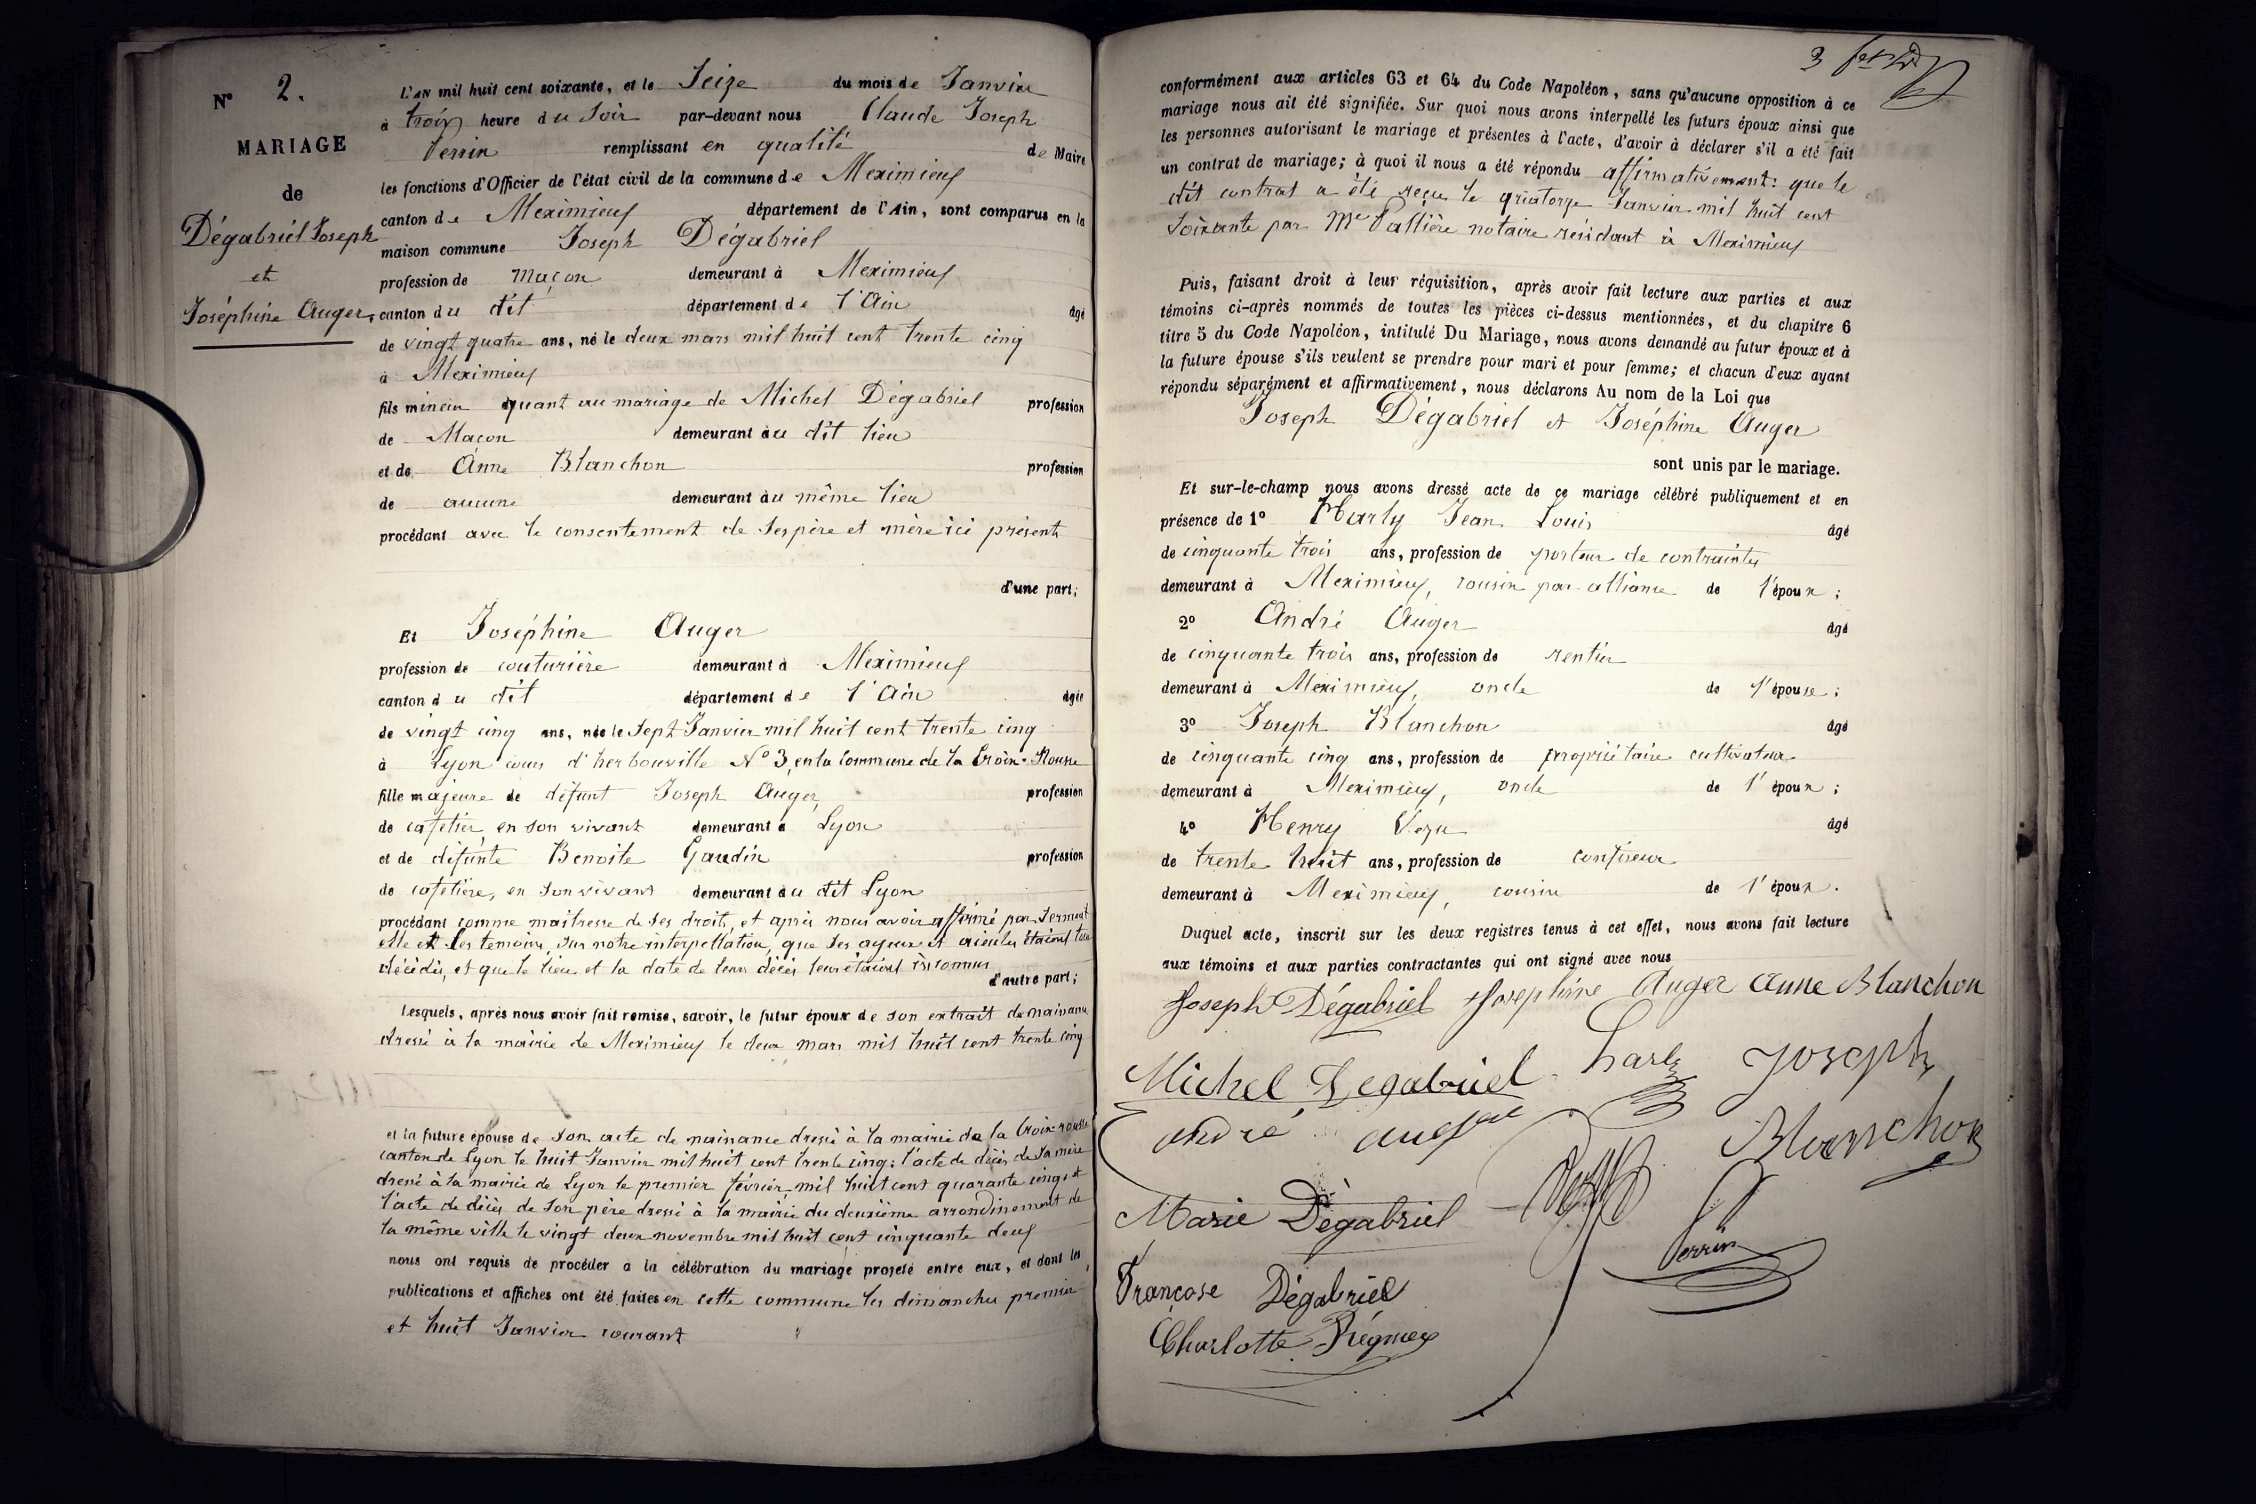 N° 2.
MARIAGE
de
Dégabriel Joseph
et
Joséphine Auger,
L'AN mil huit cent soixante, et le Seize du mois de Janvier
à trois heure du Soir par-devant nous Claude Joseph
Perrin remplissant en qualité de Maire
les fonctions d'Officier de l'état civil de la commune de Meximieux
canton de Meximieux département de l'Ain, sont comparus en la
maison commune Joseph Dégabriel
profession de maçon demeurant à Meximieux
canton du dit département de l'Ain âgé
de vingt quatre ans, né le deux mars mil huit cent trente cinq
à Meximieux
fils mineur quant au mariage de Michel Dégabriel profession
de Maçon demeurant au dit lieu
et de Anne Blanchon profession
de aucune demeurant au même lieu
procédant avec le consentement de ses père et mère ici présents
d'une part;
Et Joséphine Auger
profession de couturière demeurant à Meximieux
canton du dit département de l'Ain âgée
de vingt cinq ans, née le Sept Janvier mil huit cent trente cinq
à Lyon cours d'herbouville N° 3, en la Commune de la Croix-Rousse
fille majeure de défunt Joseph Auger, profession
de cafetier en son vivant demeurant à Lyon
et de défunte Benoite Gaudin profession
de cafetière, en son vivant demeurant au dit Lyon
procédant comme maîtresse de ses droits, et après nous avoir affirmé par serment
elle et les témoins, sur notre interpellation, que ses ayeux et aieules étaient tous
décédés, et que le lieu et la date de leurs décès leur étaient inconnus
d'autre part;
Lesquels, après nous avoir fait remise, savoir, le futur époux de son extrait de naissance
dressé à la mairie de Meximieux le deux mars mil huit cent trente cinq
et la future épouse de son acte de naissance dressé à la mairie de la Croix-rousse
canton de Lyon le huit Janvier mil huit cent trente cinq; l'acte de décès de sa mère
dressé à la mairie de Lyon le premier février mil huit cent quarante cinq et
l'acte de décès de son père dressé à la mairie du deuxième arrondissement de
la même ville le vingt deux novembre mil huit cent cinquante deux
nous ont requis de procéder à la célébration du mariage projeté entre eux, et dont les
publications et affiches ont été faites en cette commune les dimanches premier
et huit Janvier courant
3
conformément aux articles 63 et 64 du Code Napoléon, sans qu'aucune opposition à ce
mariage nous ait été signifiée. Sur quoi nous avons interpellé les futurs époux ainsi que
les personnes autorisant le mariage et présentes à l'acte, d'avoir à déclarer s'il a été fait
un contrat de mariage; à quoi il nous a été répondu affirmativement: que le
dit contrat a été reçu le quatorze Janvier mil huit cent
soixante par Me Pallière notaire résidant à Meximieux
Puis, faisant droit à leur réquisition, après avoir fait lecture aux parties et aux
témoins ci-après nommés de toutes les pièces ci-dessus mentionnées, et du chapitre 6
titre 5 du Code Napoléon, intitulé Du Mariage, nous avons demandé au futur époux et à
la future épouse s'ils veulent se prendre pour mari et pour femme; et chacun d'eux ayant
répondu séparément et affirmativement, nous déclarons Au nom de la Loi que
Joseph Dégabriel et Joséphine Auger
sont unis par le mariage.
Et sur-le-champ nous avons dressé acte de ce mariage célébré publiquement et en
présence de 1° Harly Jean Louis âgé
de cinquante trois ans, profession de porteur de contraintes
demeurant à Meximieux, cousin par alliance de l'époux;
2° André Auger âgé
de cinquante trois ans, profession de rentier
demeurant à Meximieux, oncle de l'épouse;
3° Joseph Blanchon âgé
de cinquante cinq ans, profession de propriétaire cultivateur
demeurant à Meximieux, oncle de l'époux;
4° Henry Vezu âgé
de trente huit ans, profession de confiseur
demeurant à Meximieux, cousin de l'époux.
Duquel acte, inscrit sur les deux registres tenus à cet effet, nous avons fait lecture
aux témoins et aux parties contractantes qui ont signé avec nous
Joseph Dégabriel Josephine Auger Anne Blanchon
Michel Degabriel harly Joseph
andré auger Blanchon
Marie Dégabriel
Perrin
Françose Dégabriel
Charlotte